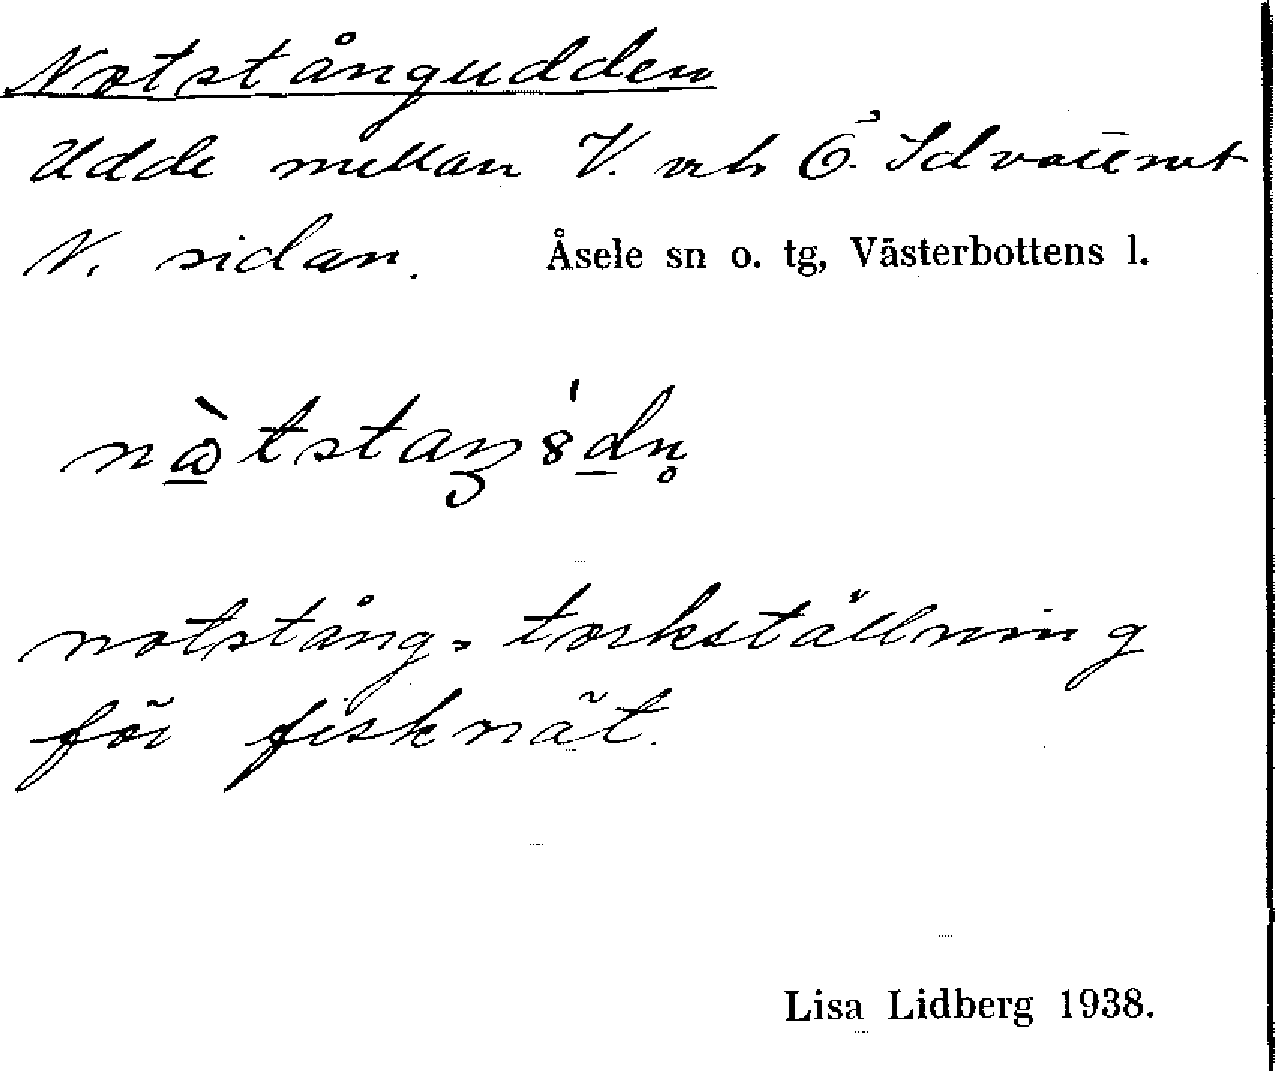 Notstångudden
Udde mellan V. och Ö. Idvattnet
N. sidan. Åsele sn o. tg, Västerbottens l.
notstång = torkställning
för fisknät.
Lisa Lidberg 1938.